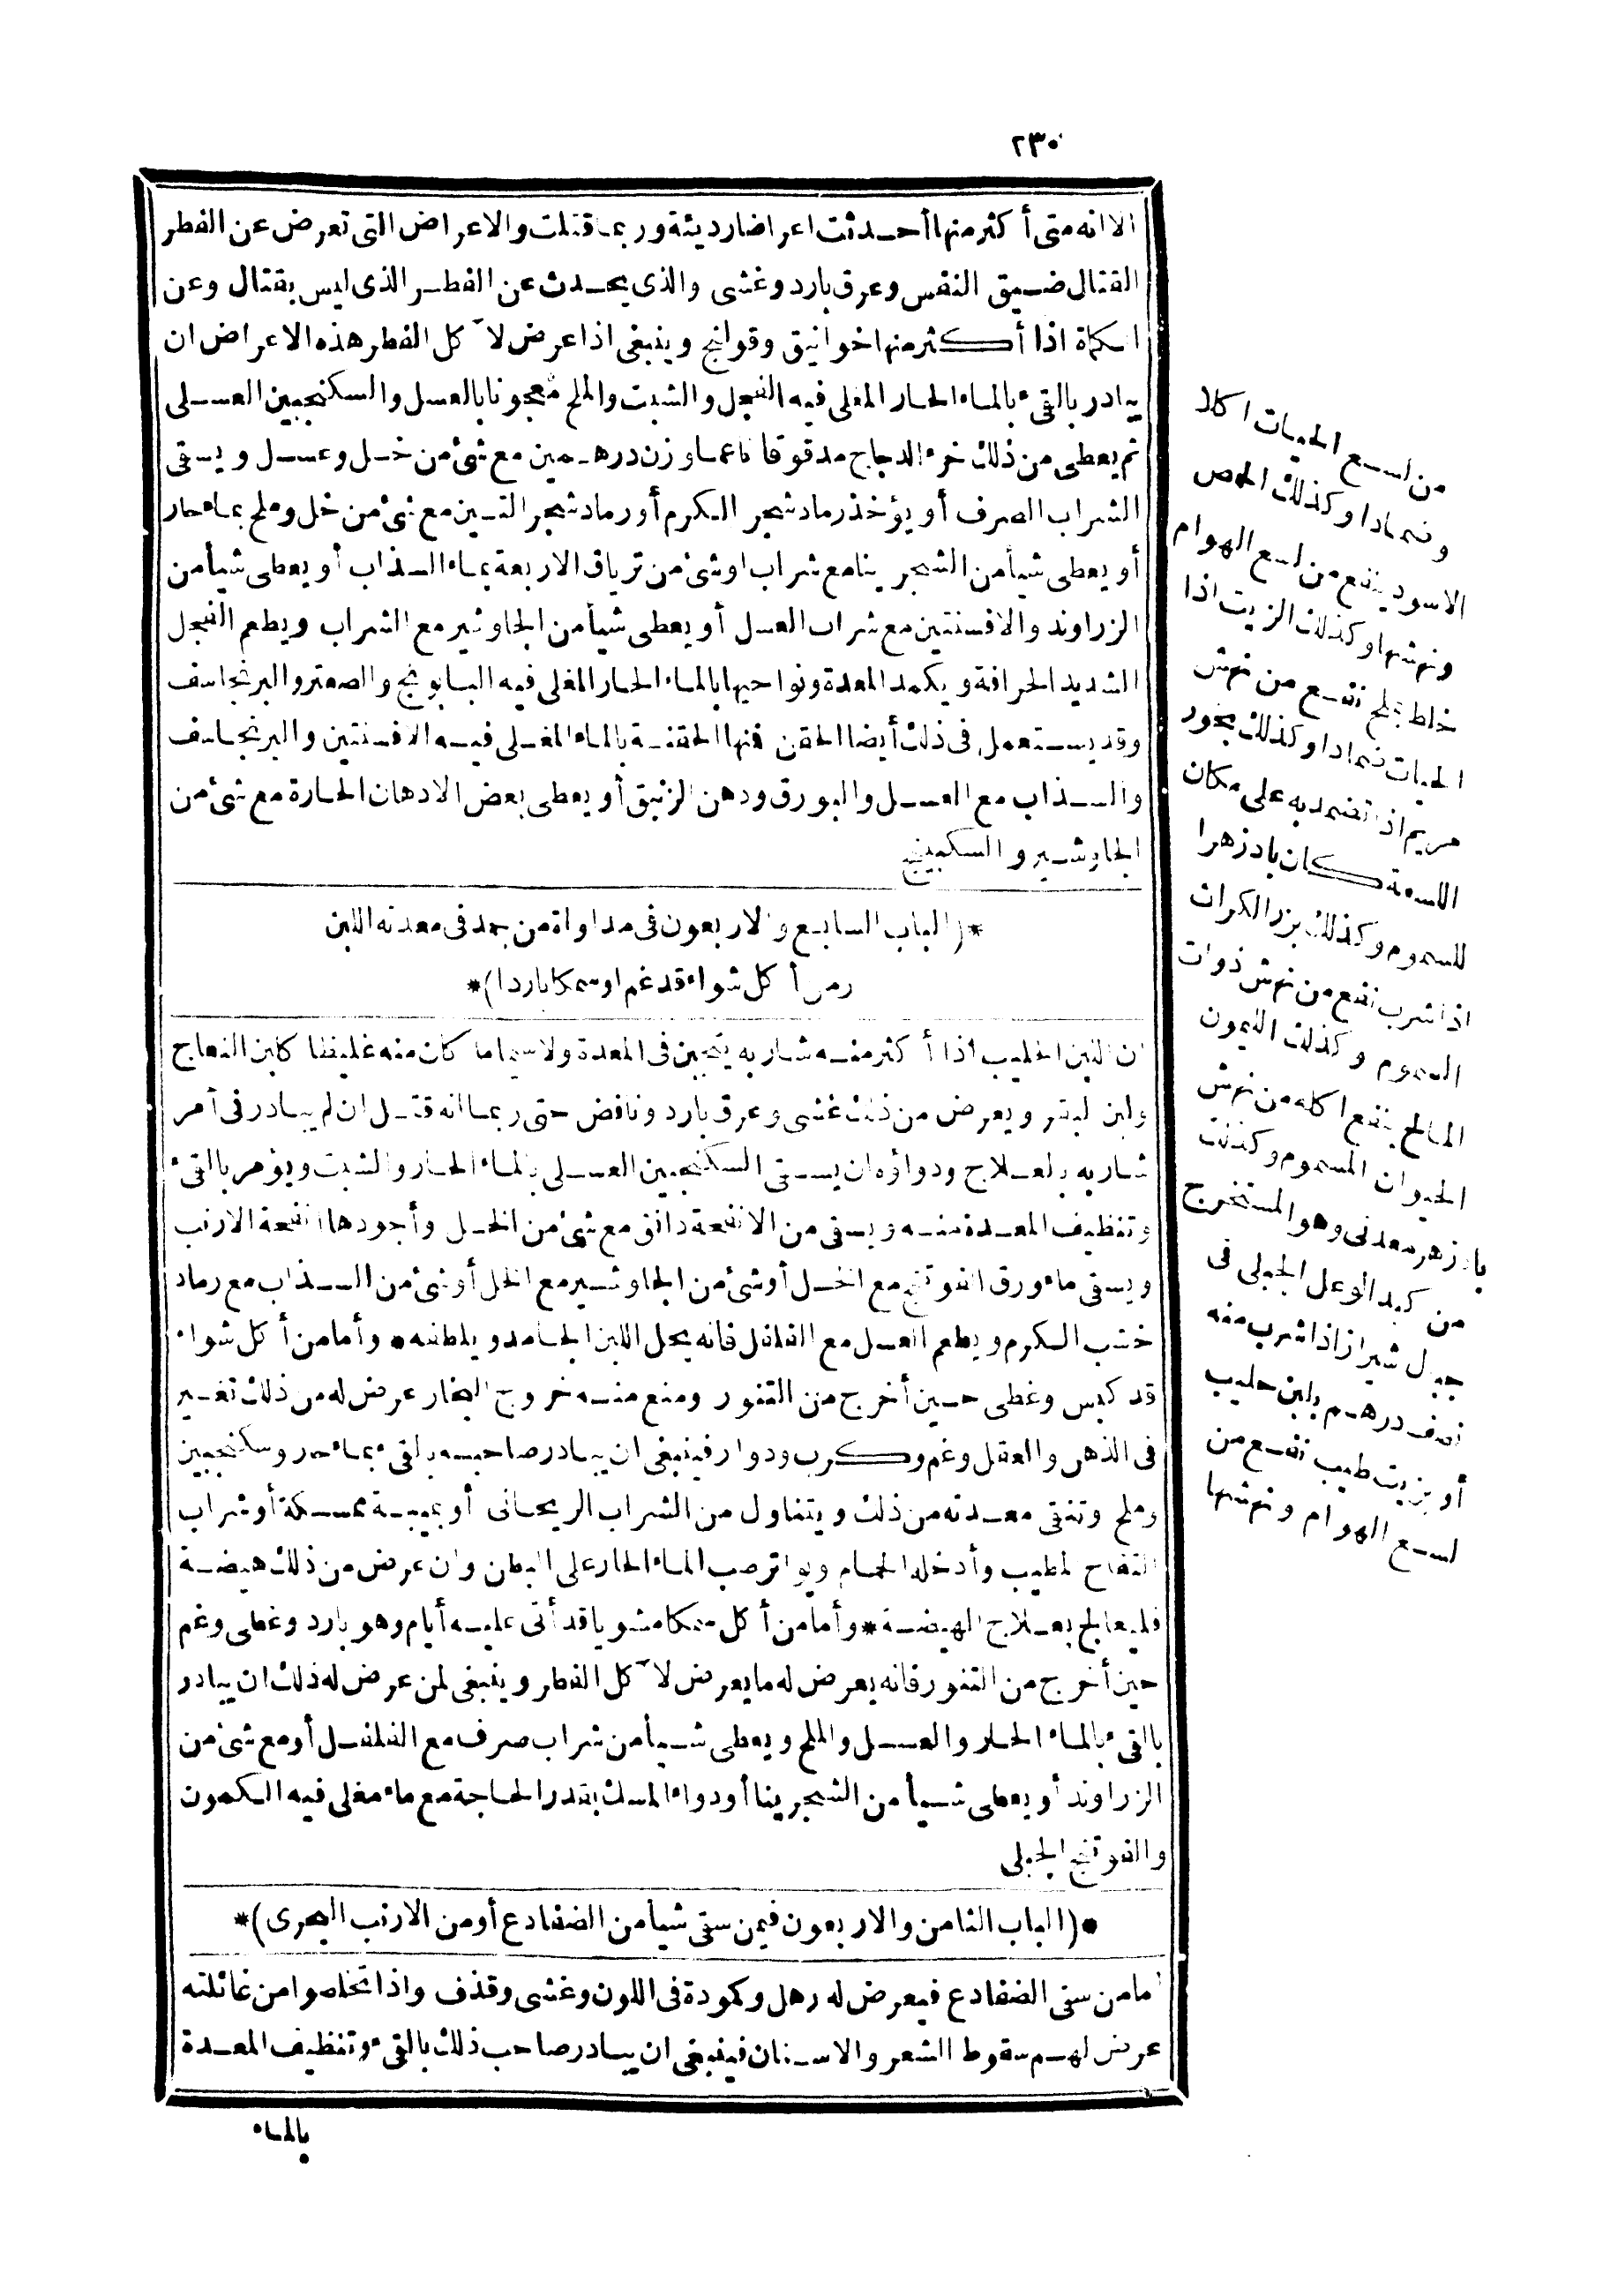 ٢٣٠
الا انه متى أكثر منها أحدثت اعراضا رديئة وربما قتلت والاعراض التى تعرض عن الفطر
القتال ضيق النفس وعرق بارد وغشى والذى يحدث عن الفطر الذى ليس بقتال وعن
الكماة اذا أكثر منها خوانيق وقولنج وينبغى اذا عرض لآكل الفطر هذه الاعراض ان
يبادر بالقىء بالماء الحار المغلى فيه الفجل والشبت والملح معجونا بالعسل والسكنجبين العسلى
ثم يعطى من ذلك خرء الدجاج مدقوقا ناعما وزن درهمين مع شئ من خل وعسل ويسقى
الشراب الصرف أو يؤخذ رماد شجر الكرم أو رماد شجر التين مع شئ من خل وملح بماء حار
أو يعطى شيأ من الشجرينا مع شراب او شئ من ترياق الاربعة بماء السذاب أو يعطى شيأ من
الزراوند والافسنتين مع شراب العسل أو يعطى شيأ من الجاوشير مع الشراب ويطعم الفجل
الشديد الحرافة ويكمد المعدة ونواحيها بالماء الحار المغلى فيه البابونج والصعتر والبرنجاسف
وقد يستعمل فى ذلك أيضا الحقن فمنها الحقنة بالماء المغلى فيه الافسنتين والبرنجاسف
والسذاب مع العسل والبورق ودهن الزنبق أو يعطى بعض الادهان الحارة مع شئ من
الجاوشير والسكبينج
*(الباب السابع والاربعون فى مداواة من جمد فى معدته اللبن
ومن أكل شواء قد غم او سمكا باردا)*
ان اللبن الحليب اذا أكثر منه شاربه يتجبن فى المعدة ولاسيما ما كان منه غليظا كلبن النعاج
ولبن البقر ويعرض من ذلك غشى وعرق بارد ونافض حتى ربما انه قتل ان لم يبادر فى أمر
شاربه بالعلاج ودواؤه ان يسقى السكنجبين العسلى بالماء الحار والشبت ويؤمر بالقىء
وتنظيف المعدة منه ويسقى من الانفحة دانق مع شئ من الخل وأجودها انفحة الارنب
ويسقى ماء ورق الفوتنج مع الخل أو شئ من الجاوشير مع الخل أو شئ من السذاب مع رماد
خشب الكرم ويطعم العسل مع الفلفل فانه يحل اللبن الجامد ويلطفه * وأما من أكل شواء
قد كبس وغطى حين أخرج من التنور ومنع منه خروج البخار عرض له من ذلك تغير
فى الذهن والعقل وغم وكرب ودوار فينبغى ان يبادر صاحبه بالقىء بماء حار وسكنجبين
وملح وتنقى معدته من ذلك ويتناول من الشراب الريحانى أو بميبة ممسكة أو شراب
التفاح المطيب وأدخله الحمام ويواتر صب الماء الحار على البطن وان عرض من ذلك هيضة
فليعالج بعلاج الهيضة * وأما من أكل سمكا مشويا قد أتى عليه أيام وهو بارد وغطى وغم
حين أخرج من التنور فانه يعرض له ما يعرض لآكل الفطر وينبغى لمن عرض له ذلك ان يبادر
بالقىء بالماء الحار والعسل والملح ويعطى شيأ من شراب صرف مع الفلفل أو مع شئ من
الزراوند أو يعطى شيأ من الشجرينا أو دواء المسك بقدر الحاجة مع ماء مغلى فيه الكمون
والفوتنج الجبلى
*(الباب الثامن والاربعون فيمن سقى شيأ من الضفادع أو من الارنب البحرى)*
أما من سقى الضفادع فيعرض له رهل وكمودة فى اللون وغشى وقذف واذا تخلصوا من غائلته
عرض لهم سقوط الشعر والاسنان فينبغى ان يبادر صاحب ذلك بالقىء وتنظيف المعدة
بالماء
من لسع الحيات اكلا
وضمادا وكذلك الحمص
الاسود ينفع من لسع الهوام
ونهشها وكذلك الزيت اذا
خلط بملح نفع من نهش
الحيات ضمادا وكذلك بخور
مريم اذا تضمد به على مكان
اللسعة كان بادزهرا
للسموم وكذلك بزر الكراث
اذا شرب نفع من نهش ذوات
السموم وكذلك الليمون
المالح ينفع اكله من نهش
الحيوان المسموم وكذلك
بادزهر معدنى وهو المستخرج
من كبد الوعل الجبلى فى
جبل شيراز اذا شرب منه
نصف درهم بلبن حليب
أو بزيت طيب نفع من
لسع الهوام ونهشها